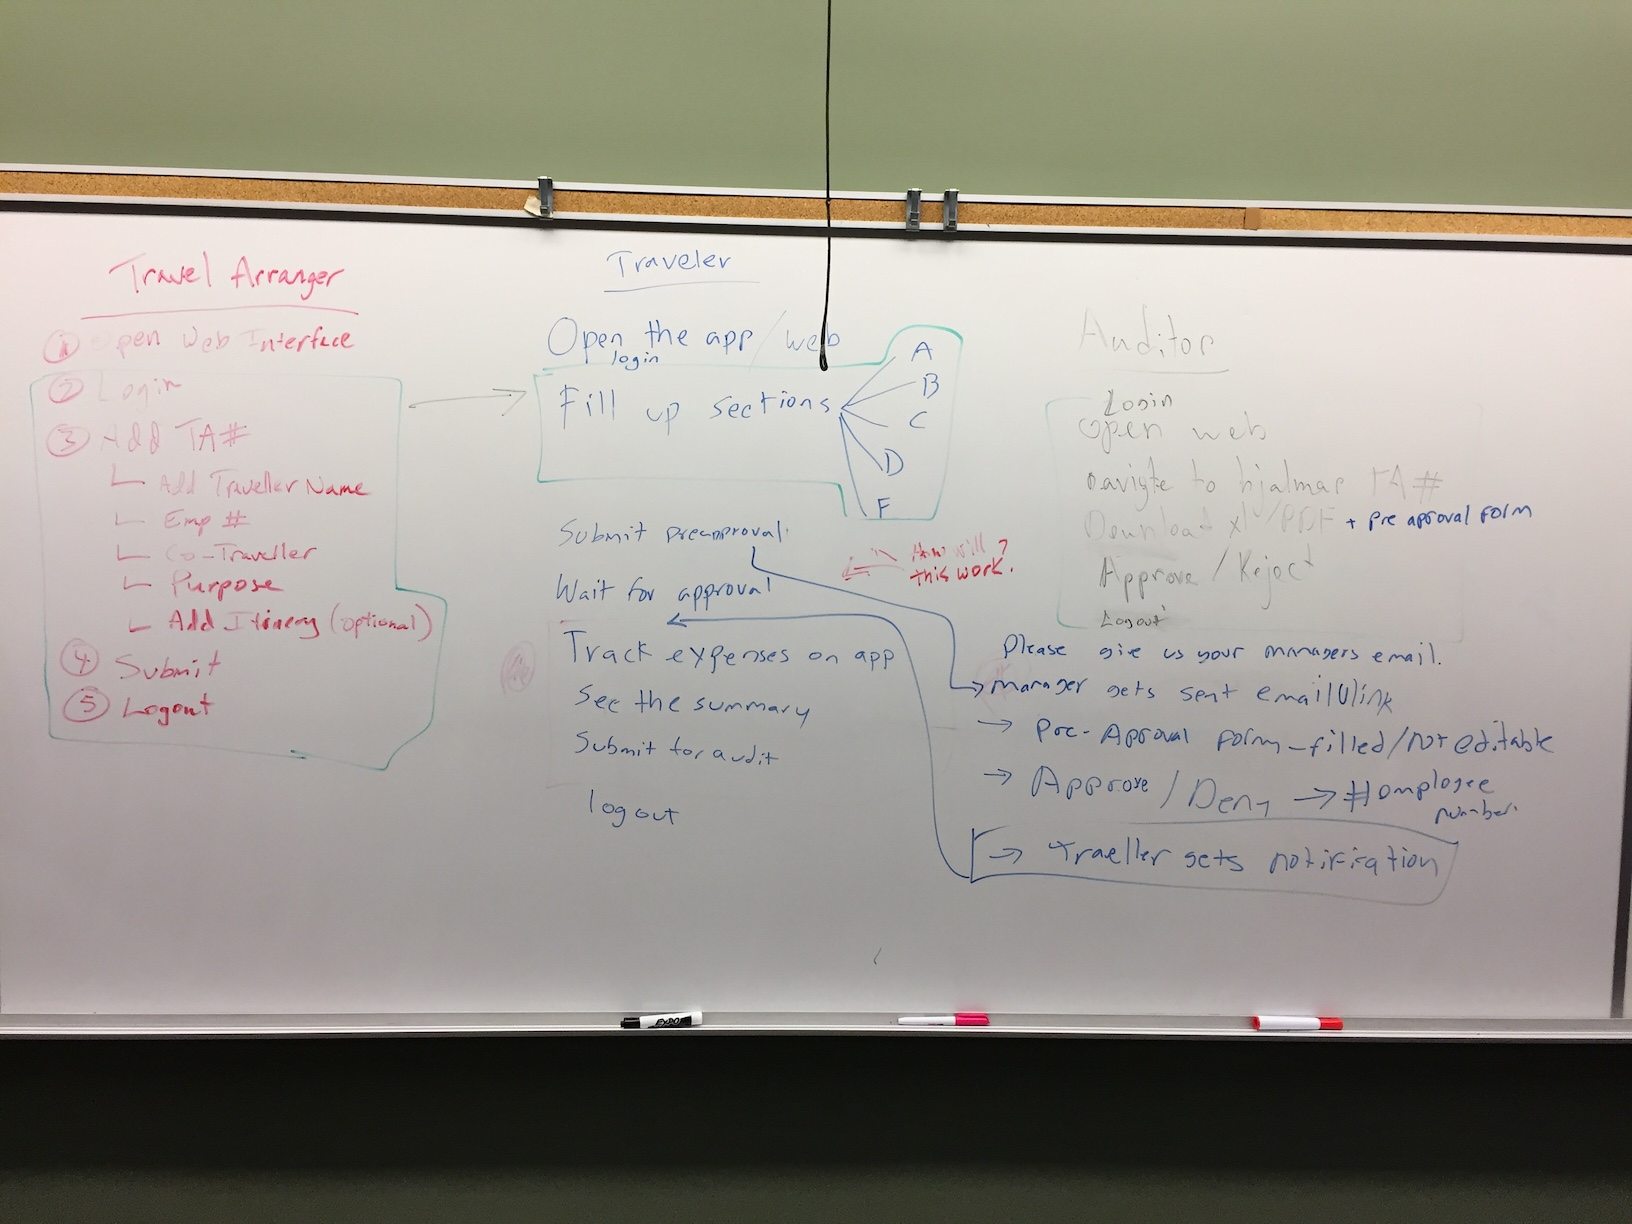 Travel Arranger
① Open Web Interface
② Login
③ Add TA#
Add Traveller Name
Emp #
Co-Traveller
Purpose
Add Itinery (optional)
④ Submit
⑤ Logout
Traveler
Open the app/web
login
Fill up sections
A
B
C
D
F
Submit preapproval
Wait for approval
Track expenses on app
See the summary
Submit for audit
logout
How will
this work?
Auditor
Login
open web
navigte to hjalmar TA#
Download xl/PDF + pre aproval form
Approve / Reject
Logout
Please give us your managers email.
→ manager gets sent email w link
→ pre-Aproval form-filled/not editable
→ Approve / Deny → # employee
number
→ Traeller gets notification
EXPO